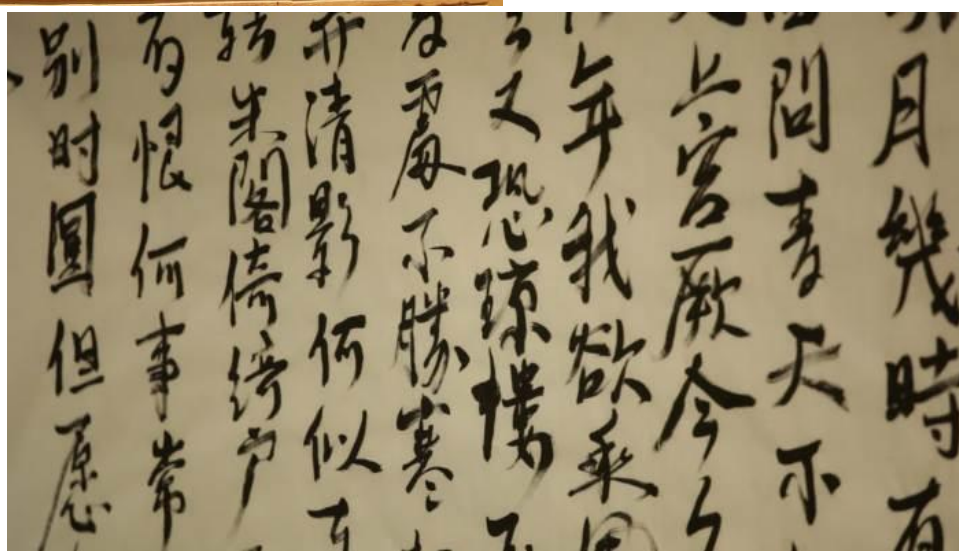 月幾時有
問青天不
上宮闕今夕
年我欲乘風
又恐瓊樓玉
處不勝寒起
弄清影何似在
轉朱閣倚绮户
有恨何事常
别时圓但愿